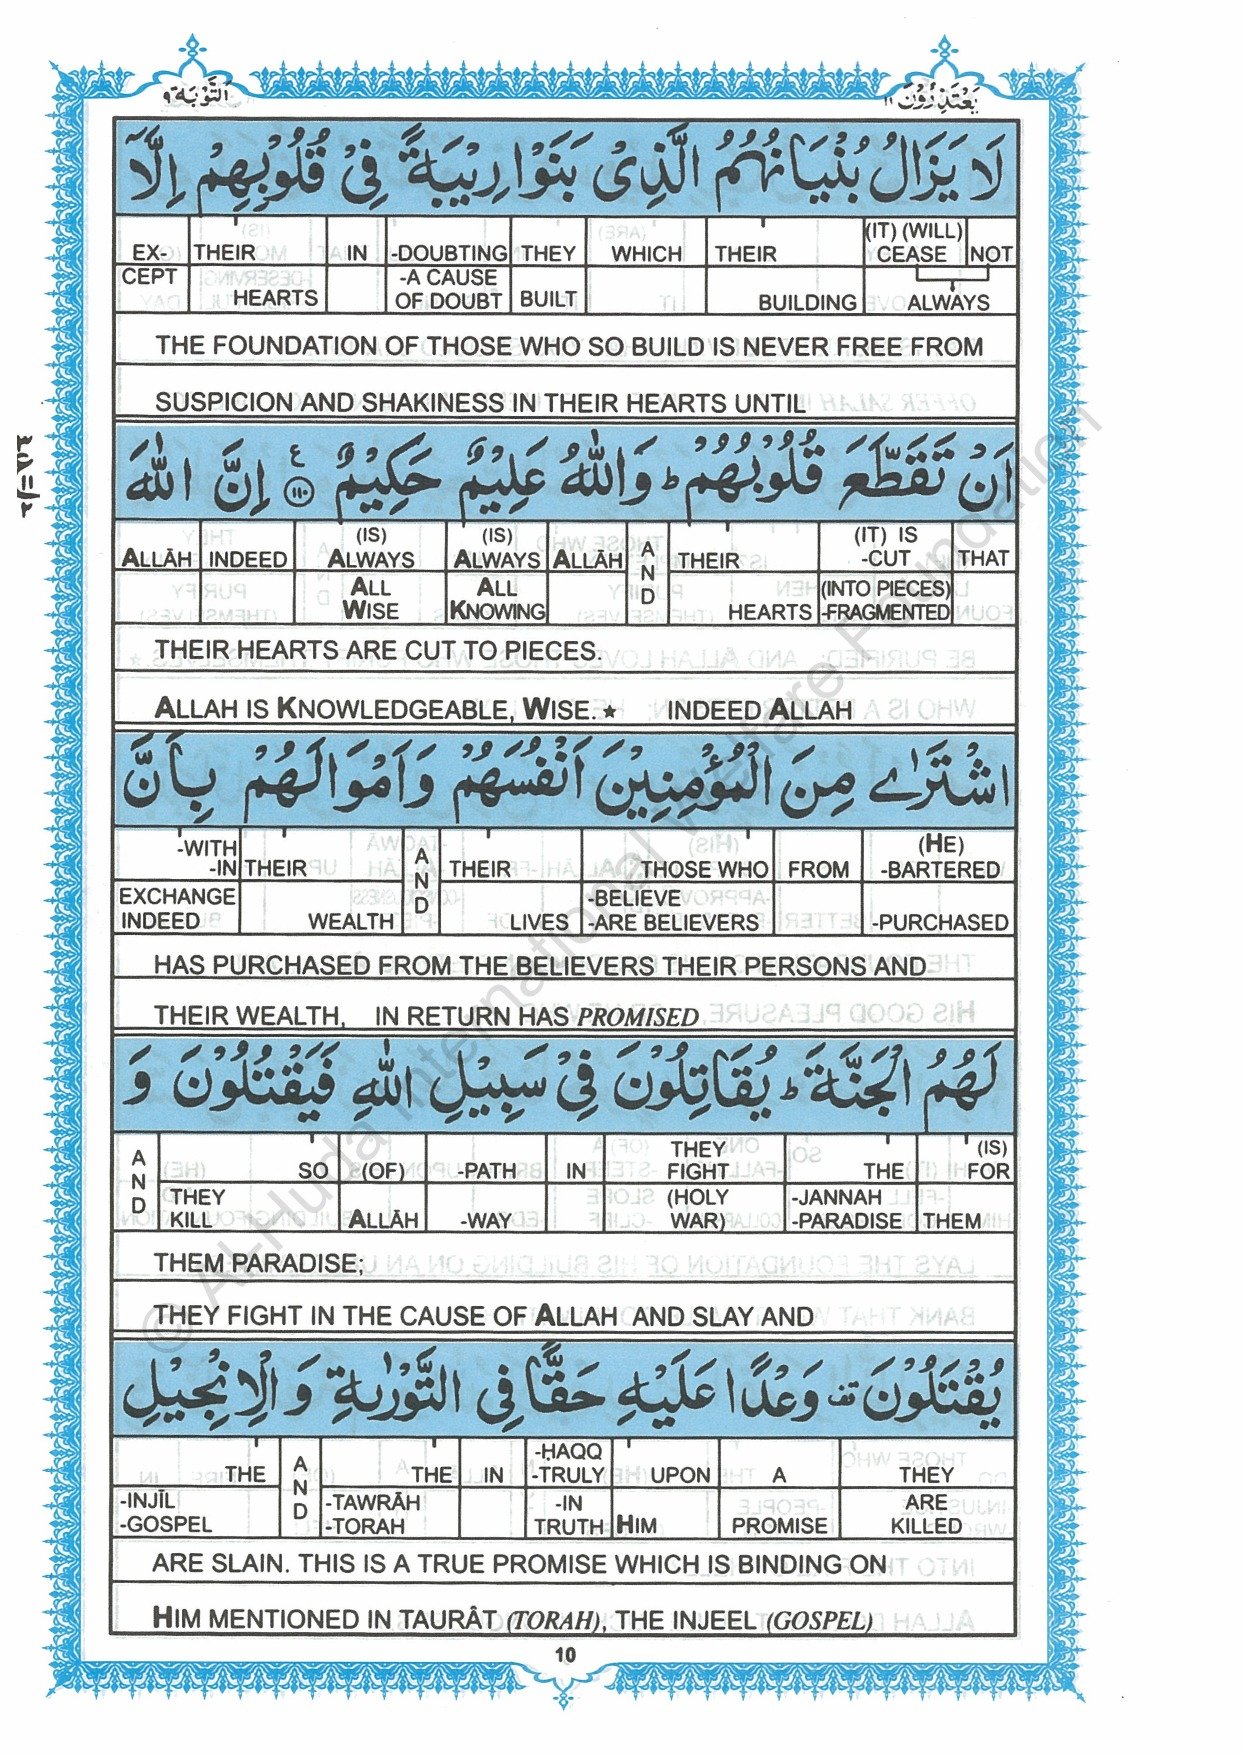 التوبة ٩
يعتذرون ١١
لَا يَزَالُ بُنْيَانُهُمُ الَّذِىْ بَنَوْا رِيْبَةً فِىْ قُلُوْبِهِمْ اِلَّآ
EX- THEIR IN -DOUBTING THEY WHICH THEIR (IT) (WILL) CEASE NOT
CEPT HEARTS -A CAUSE OF DOUBT BUILT BUILDING ALWAYS
THE FOUNDATION OF THOSE WHO SO BUILD IS NEVER FREE FROM
SUSPICION AND SHAKINESS IN THEIR HEARTS UNTIL
اَنْ تَقَطَّعَ قُلُوْبُهُمْ ؕ وَاللّٰهُ عَلِيْمٌ حَكِيْمٌ ۝۱۱۰ ع اِنَّ اللّٰهَ
ALLĀH INDEED (IS) ALWAYS (IS) ALWAYS ALLĀH AND THEIR (IT) IS -CUT THAT
ALL WISE ALL KNOWING HEARTS (INTO PIECES) -FRAGMENTED
THEIR HEARTS ARE CUT TO PIECES.
ALLAH IS KNOWLEDGEABLE, WISE.★ INDEED ALLAH
اشْتَرٰى مِنَ الْمُؤْمِنِيْنَ اَنْفُسَهُمْ وَاَمْوَالَهُمْ بِاَنَّ
-WITH -IN THEIR AND THEIR THOSE WHO FROM (HE) -BARTERED
EXCHANGE INDEED WEALTH LIVES -BELIEVE -ARE BELIEVERS -PURCHASED
HAS PURCHASED FROM THE BELIEVERS THEIR PERSONS AND
THEIR WEALTH, IN RETURN HAS PROMISED
لَهُمُ الْجَنَّةَ ؕ يُقَاتِلُوْنَ فِىْ سَبِيْلِ اللّٰهِ فَيَقْتُلُوْنَ وَ
AND SO (OF) -PATH IN THEY FIGHT THE (IS) FOR
THEY KILL ALLĀH -WAY (HOLY WAR) -JANNAH -PARADISE THEM
THEM PARADISE;
THEY FIGHT IN THE CAUSE OF ALLAH AND SLAY AND
يُقْتَلُوْنَ وَعْدًا عَلَيْهِ حَقًّا فِى التَّوْرٰىةِ وَ الْاِنْجِيْلِ
THE AND THE IN -ḤAQQ -TRULY UPON A THEY
-INJĪL -GOSPEL -TAWRĀH -TORAH -IN TRUTH HIM PROMISE ARE KILLED
ARE SLAIN. THIS IS A TRUE PROMISE WHICH IS BINDING ON
HIM MENTIONED IN TAURÂT (TORAH), THE INJEEL (GOSPEL)
10
© Al-Huda International Welfare Foundation